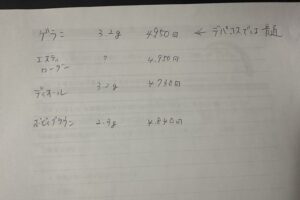 ゲラン 3.2g 4950円 ← デパコスでは普通
エスティ
ローダー ? 4.950円
ディオール 3.2g 4730円
ボビィブラウン 2.9g 4.840円